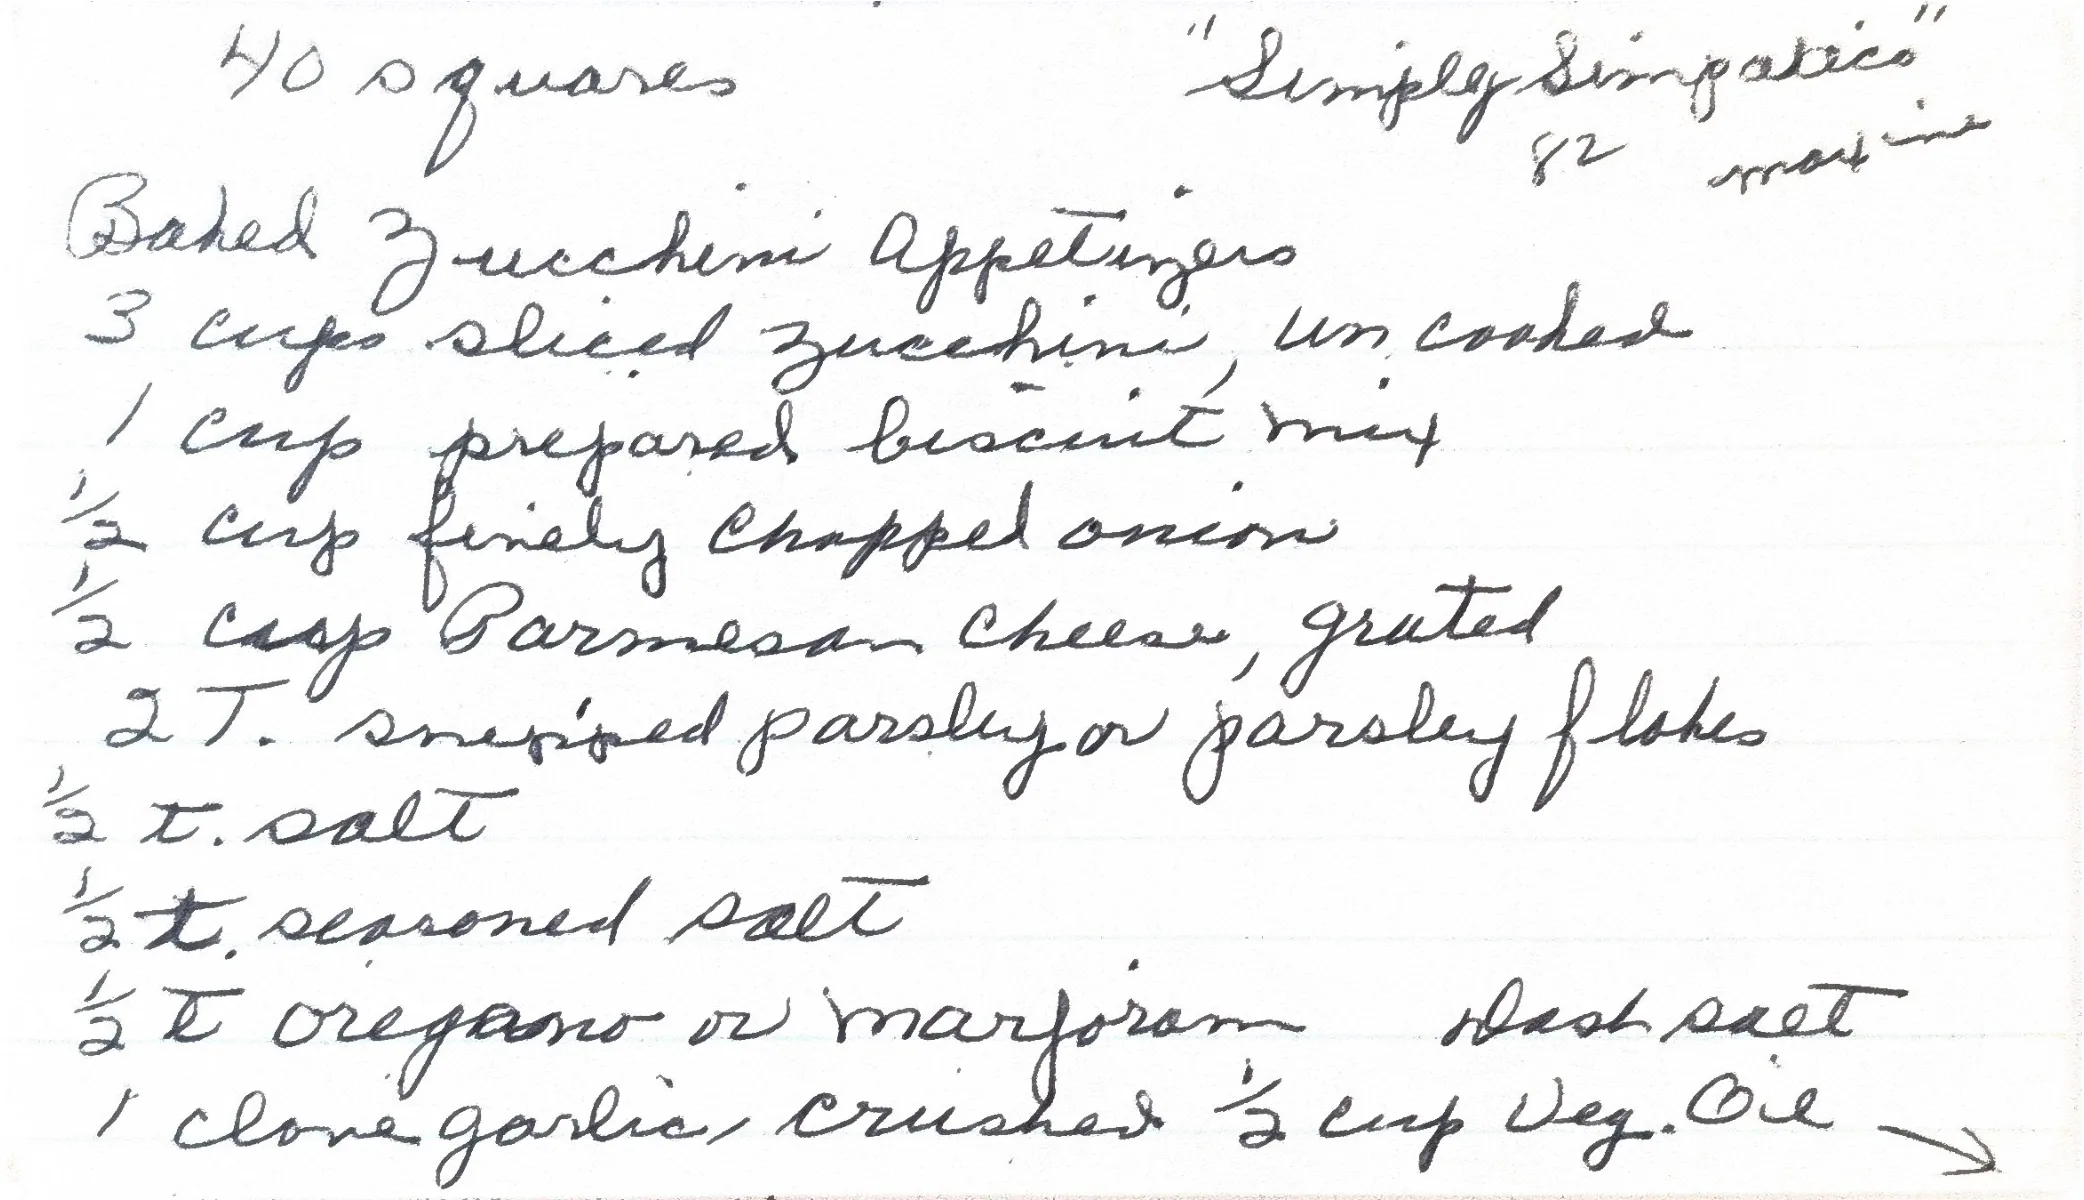 40 squares "Simply Simpatico"
82 maxine
Baked Zucchini Appetizers
3 cups sliced zucchini, uncooked
1 cup prepared biscuit mix
1/2 cup finely chopped onion
1/2 cup Parmesan cheese, grated
2 T. snipped parsley or parsley flakes
1/2 t. salt
1/2 t. seasoned salt
1/2 t oregano or marjoram Dash salt
1 clove garlic, crushed 1/2 cup Veg. Oil →